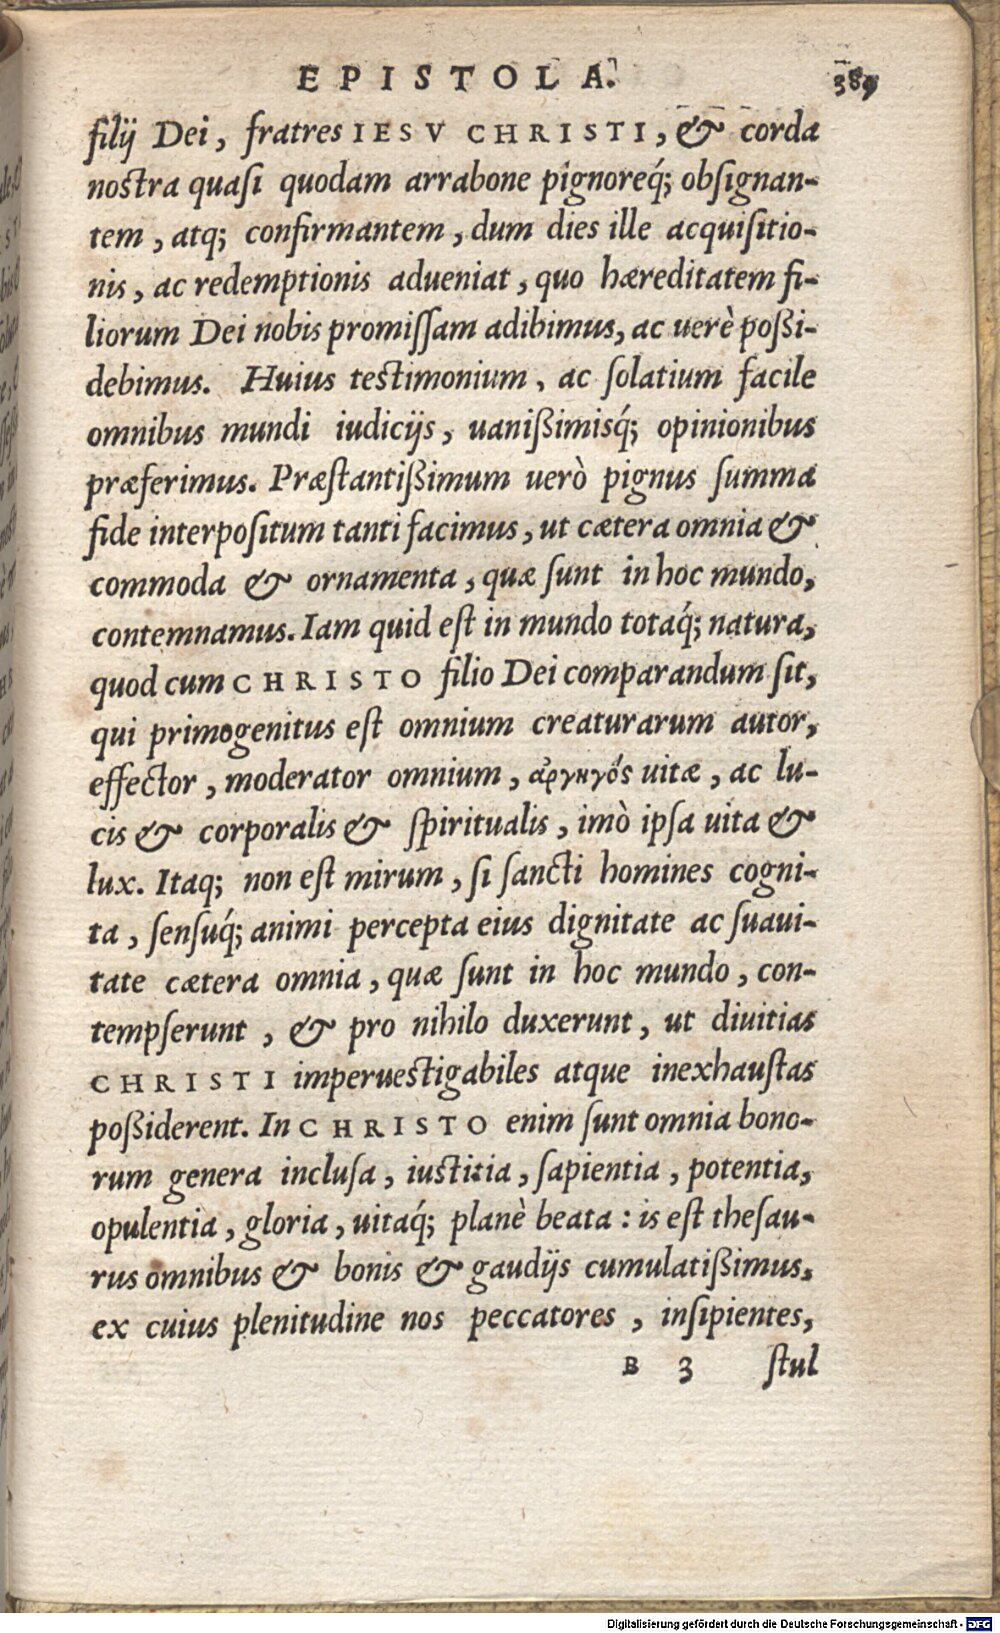 EPISTOLA. 389
filij Dei, fratres IESV CHRISTI, & corda
nostra quasi quodam arrabone pignoreq́; obsignan-
tem, atq; confirmantem, dum dies ille acquisitio-
nis, ac redemptionis adueniat, quo hæreditatem fi-
liorum Dei nobis promissam adibimus, ac uerè poßi-
debimus. Huius testimonium, ac solatium facile
omnibus mundi iudicijs, uanißimisq́; opinionibus
præferimus. Præstantißimum uerò pignus summa
fide interpositum tanti facimus, ut cætera omnia &
commoda & ornamenta, quæ sunt in hoc mundo,
contemnamus. Iam quid est in mundo totaq́; natura,
quod cum CHRISTO filio Dei comparandum sit,
qui primogenitus est omnium creaturarum autor,
effector, moderator omnium, ἀρχηγός uitæ, ac lu-
cis & corporalis & spiritualis, imò ipsa uita &
lux. Itaq; non est mirum, si sancti homines cogni-
ta, sensuq́; animi percepta eius dignitate ac suaui-
tate cætera omnia, quæ sunt in hoc mundo, con-
tempserunt, & pro nihilo duxerunt, ut diuitias
CHRISTI imperuestigabiles atque inexhaustas
poßiderent. In CHRISTO enim sunt omnia bono-
rum genera inclusa, iustitia, sapientia, potentia,
opulentia, gloria, uitaq́; planè beata: is est thesau-
rus omnibus & bonis & gaudijs cumulatißimus,
ex cuius plenitudine nos peccatores, insipientes,
B 3 stul
Digitalisierung gefördert durch die Deutsche Forschungsgemeinschaft - DFG